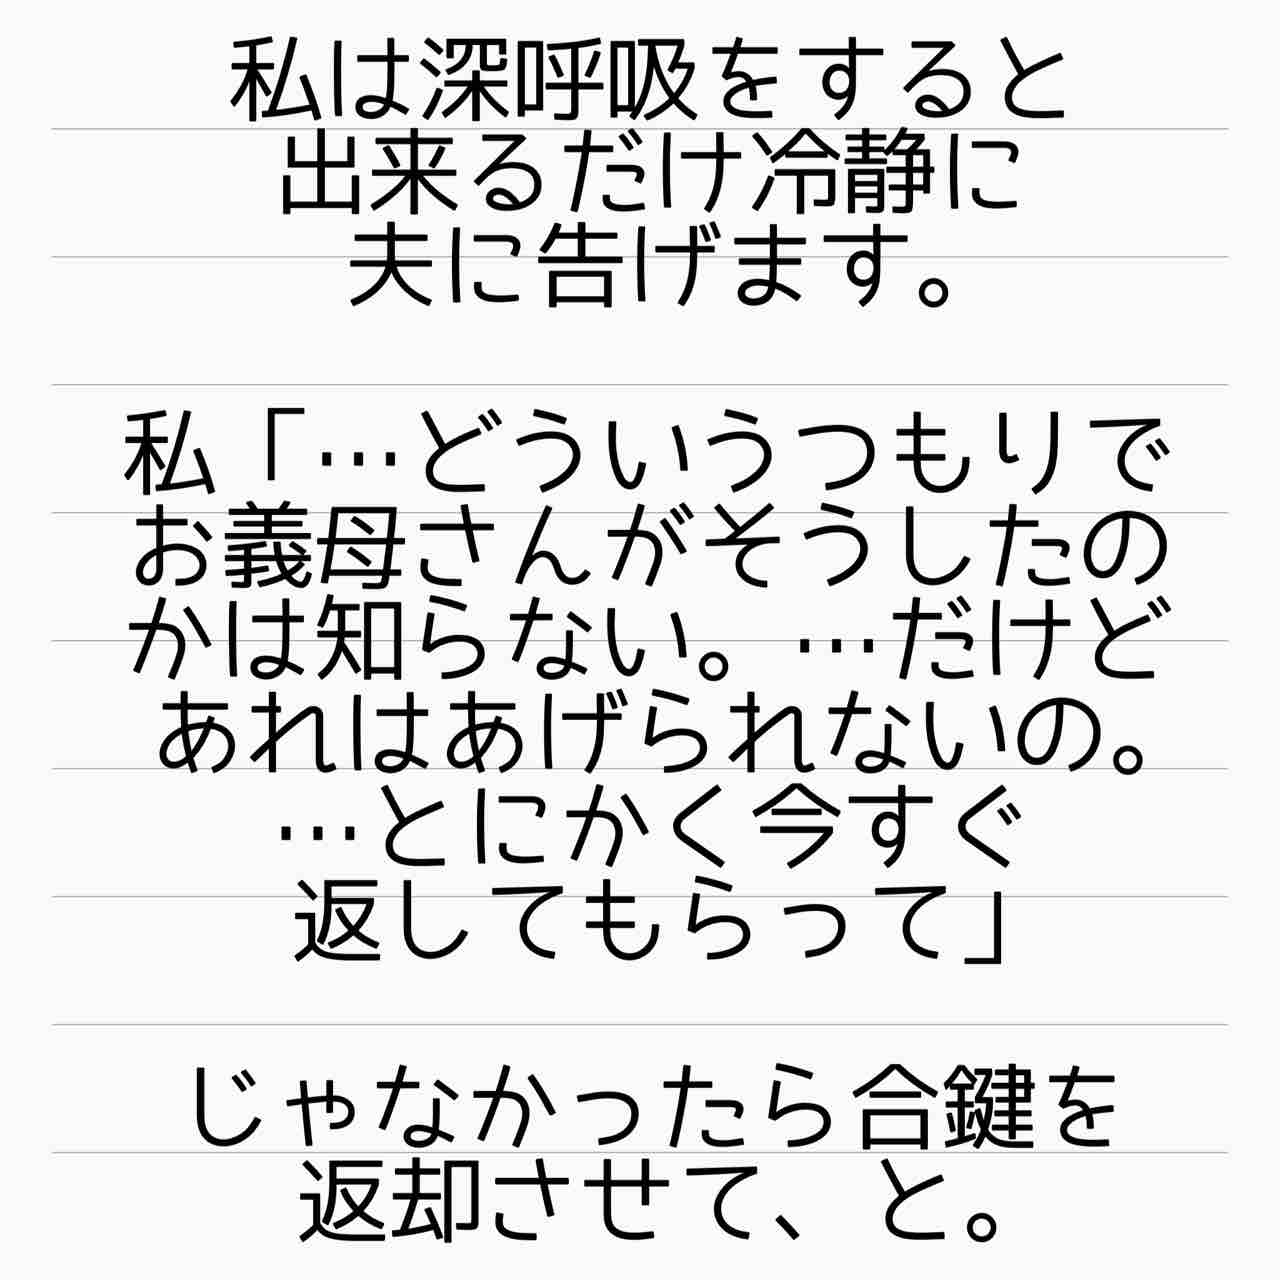 私は深呼吸をすると
出来るだけ冷静に
夫に告げます。
私「…どういうつもりで
お義母さんがそうしたの
かは知らない。…だけど
あれはあげられないの。
…とにかく今すぐ
返してもらって」
じゃなかったら合鍵を
返却させて、と。